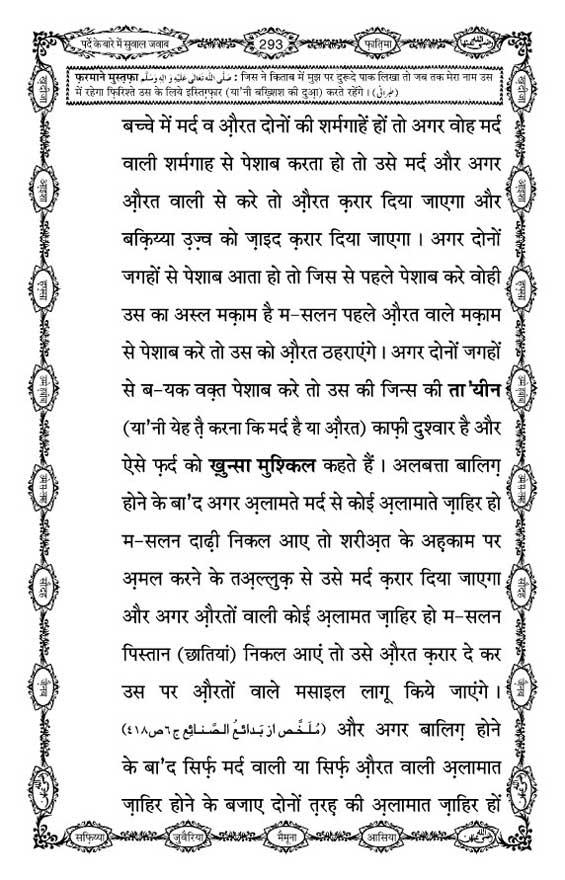 पर्दे के बारे में सुवाल जवाब
293
फ़ातिमा
फ़रमाने मुस्तफ़ा صَلَّى اللهُ تَعَالَى عَلَيْهِ وَاٰلِهٖ وَسَلَّم : जिस ने किताब में मुझ पर दुरूदे पाक लिखा तो जब तक मेरा नाम उस
में रहेगा फ़िरिश्ते उस के लिये इस्तिग़्फ़ार (या'नी बख़्शिश की दुआ) करते रहेंगे। (طبرانی)
बच्चे में मर्द व औ़रत दोनों की शर्मगाहें हों तो अगर वोह मर्द
वाली शर्मगाह से पेशाब करता हो तो उसे मर्द और अगर
औ़रत वाली से करे तो औ़रत क़रार दिया जाएगा और
बक़िय्या उ़ज़्व को ज़ाइद क़रार दिया जाएगा । अगर दोनों
जगहों से पेशाब आता हो तो जिस से पहले पेशाब करे वोही
उस का अस्ल मक़ाम है म-सलन पहले औ़रत वाले मक़ाम
से पेशाब करे तो उस को औ़रत ठहराएंगे । अगर दोनों जगहों
से ब-यक वक़्त पेशाब करे तो उस की जिन्स की ता'यीन
(या'नी येह तै़ करना कि मर्द है या औ़रत) काफ़ी दुश्वार है और
ऐसे फ़र्द को ख़ुन्सा मुश्किल कहते हैं । अलबत्ता बालिग़
होने के बा'द अगर अ़लामते मर्द से कोई अ़लामाते ज़ाहिर हो
म-सलन दाढ़ी निकल आए तो शरीअ़त के अह़काम पर
अ़मल करने के तअ़ल्लुक़ से उसे मर्द क़रार दिया जाएगा
और अगर औ़रतों वाली कोई अ़लामत ज़ाहिर हो म-सलन
पिस्तान (छातियां) निकल आएं तो उसे औ़रत क़रार दे कर
उस पर औ़रतों वाले मसाइल लागू किये जाएंगे ।
(مُلَخَّص از بَدائعُ الصَّنائِع ج٦ص٤١٨) और अगर बालिग़ होने
के बा'द सिर्फ़ मर्द वाली या सिर्फ़ औ़रत वाली अ़लामात
ज़ाहिर होने के बजाए दोनों त़रह़ की अ़लामात ज़ाहिर हों
सफ़िय्या
जुवैरिया
मैमूना
आसिया